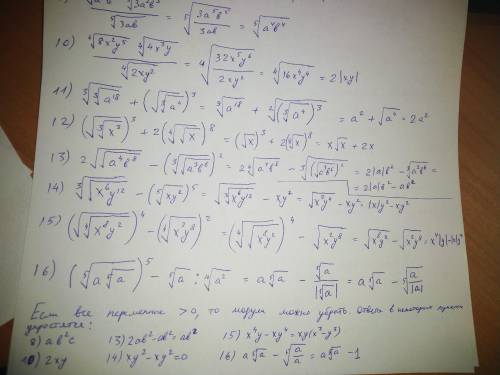 ⁵√3ab = ⁵√(3a⁵b⁵/3ab) = ⁵√(a⁴b⁴)
10) ⁴√(8x²y⁵) ⁴√(4x³y) / ⁴√(2xy²) = ⁴√(32x⁵y⁶/2xy²) = ⁴√(16x⁴y⁴) = 2|xy|
11) ³√(³√(a¹⁸)) + (³√(³√(a⁴)))³ = ⁹√(a¹⁸) + ²√((³√(a⁴))³) = a² + √(a⁴) = 2a²
12) (³√(³√(x³)))³ + 2(⁴√(√x))⁸ = (√x)³ + 2(⁸√x)⁸ = x√x + 2x
13) 2√(√(a⁴b⁸)) − (³√(³√(a³b⁸)))² = 2⁴√(a⁴b⁸) − ³√((³√(a³b²))²) = 2|a|b² − ³√(a³b⁶) =
= 2|a|b² − ab²
14) ³√(√(x⁶y¹²)) − (⁵√(xy²))⁵ = √(³√(x⁶y¹²)) − xy² = √(x²y⁴) − xy² = |x|y² − xy²
15) (√(⁴√(x⁸y²)))⁴ − (⁴√(x²y⁸))² = (⁴√(√(x⁸y²)))⁴ − √(x²y⁸) = √(x⁸y²) − √(x²y⁸) = x⁴|y| − |x|y⁴
16) (⁵√(a ⁵√a))⁵ − ⁵√a : ⁴√(a²) = a ⁵√a − ⁵√a/|√|a|| = a ⁵√a − ⁵√(a/|a|)
Если все переменные >0, то модули можно убрать. Ответы в некоторых пунктах
упростятся:
8) ab²c 13) 2ab²−ab² = ab² 15) x⁴y−xy⁴ = xy(x³−y³)
10) 2xy 14) xy²−xy² = 0 16) a ⁵√a − ⁵√(a/a) = a ⁵√a − 1